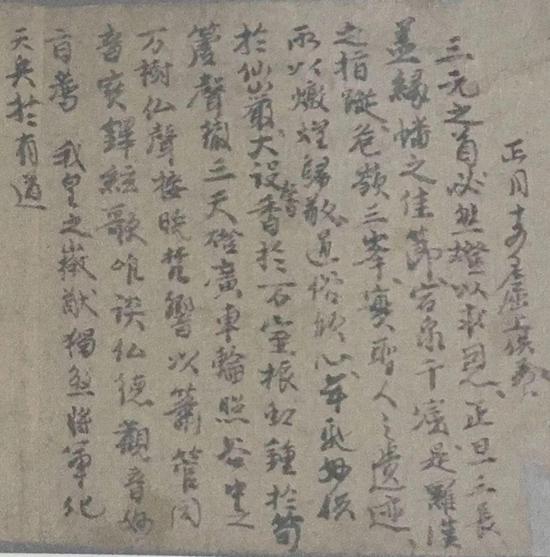 正月十五日窟上供養
三元之首必燃燈以求恩正旦三長
盖緣幡之佳節宕泉千窟是羅漢
之指蹤危嶺三峯實聖人之遺迹
所以燉煌歸敬道俗傾心年馳妙供
於仙巖大設馨香於万室振虹鐘於筍
簴聲徹三天燈廣車輪照谷中之
万樹仏聲接曉梵響以簫管同
音寶鐸絃歌唯談仏德觀音妙
旨薦 我皇之徽猷獨煞將軍化
天兵於有道